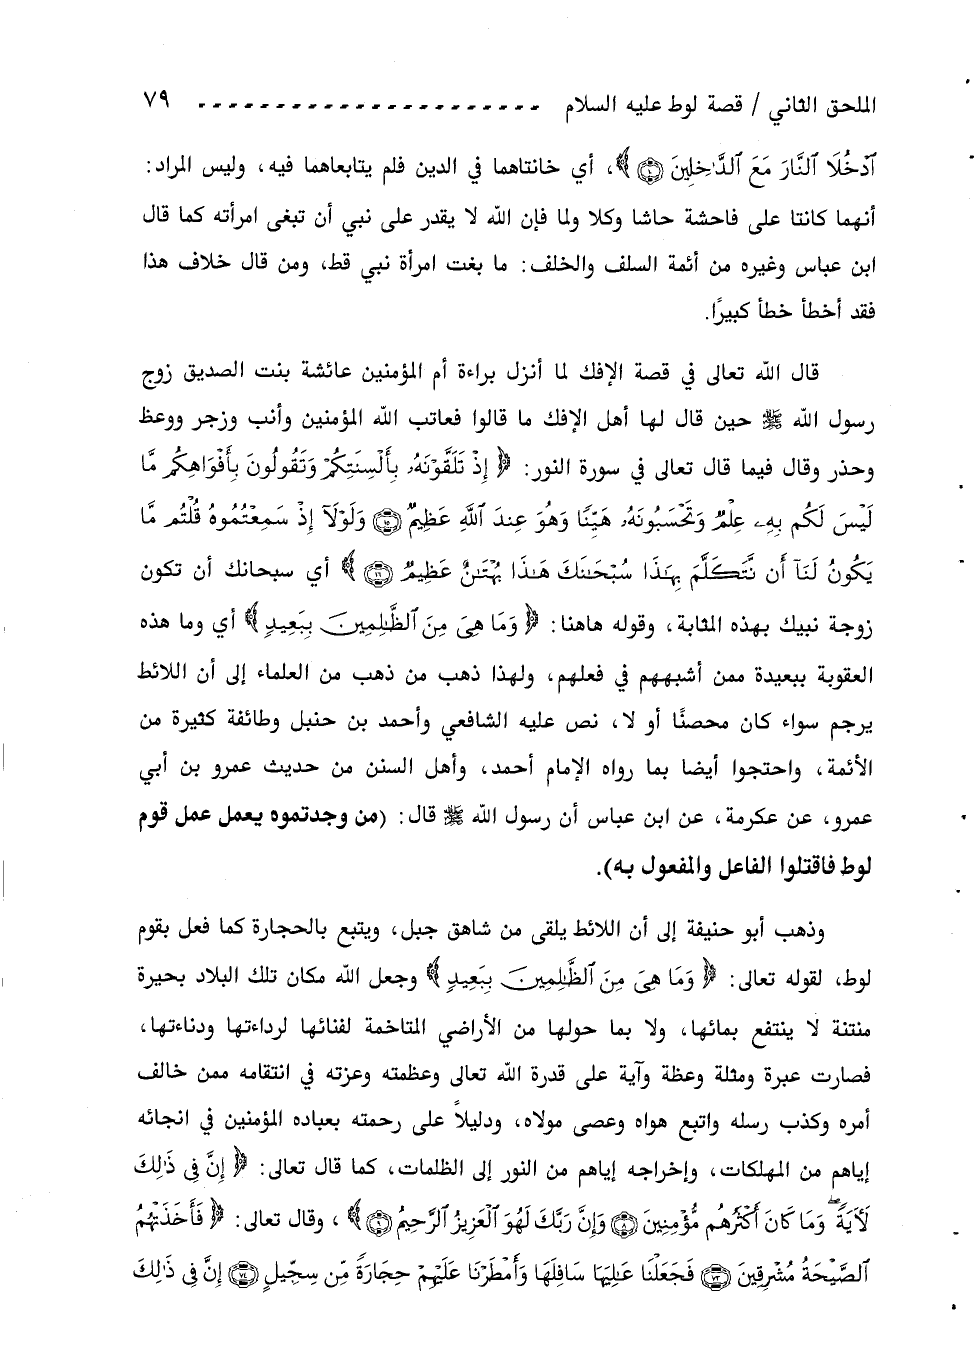 الملحق الثاني / قصة لوط عليه السلام ٧٩
ٱدْخُلَا ٱلنَّارَ مَعَ ٱلدَّٰخِلِينَ ﴿١٠﴾، أي خانتاهما في الدين فلم يتابعاهما فيه، وليس المراد:
أنهما كانتا على فاحشة حاشا وكلا ولما فإن الله لا يقدر على نبي أن تبغى امرأته كما قال
ابن عباس وغيره من أئمة السلف والخلف: ما بغت امرأة نبي قط، ومن قال خلاف هذا
فقد أخطأ خطأ كبيرًا.
قال الله تعالى في قصة الإفك لما أنزل براءة أم المؤمنين عائشة بنت الصديق زوج
رسول الله ﷺ حين قال لها أهل الإفك ما قالوا فعاتب الله المؤمنين وأنب وزجر ووعظ
وحذر وقال فيما قال تعالى في سورة النور: ﴿ إِذْ تَلَقَّوْنَهُۥ بِأَلْسِنَتِكُمْ وَتَقُولُونَ بِأَفْوَاهِكُم مَّا
لَيْسَ لَكُم بِهِۦ عِلْمٌ وَتَحْسَبُونَهُۥ هَيِّنًا وَهُوَ عِندَ ٱللَّهِ عَظِيمٌ ﴿١٥﴾ وَلَوْلَآ إِذْ سَمِعْتُمُوهُ قُلْتُم مَّا
يَكُونُ لَنَآ أَن نَّتَكَلَّمَ بِهَٰذَا سُبْحَٰنَكَ هَٰذَا بُهْتَٰنٌ عَظِيمٌ ﴿١٦﴾ ﴾ أي سبحانك أن تكون
زوجة نبيك بهذه المثابة، وقوله هاهنا: ﴿ وَمَا هِىَ مِنَ ٱلظَّٰلِمِينَ بِبَعِيدٍ ﴾ أي وما هذه
العقوبة ببعيدة ممن أشبههم في فعلهم، ولهذا ذهب من ذهب من العلماء إلى أن اللائط
يرجم سواء كان محصنًا أو لا، نص عليه الشافعي وأحمد بن حنبل وطائفة كثيرة من
الأئمة، واحتجوا أيضا بما رواه الإمام أحمد، وأهل السنن من حديث عمرو بن أبي
عمرو، عن عكرمة، عن ابن عباس أن رسول الله ﷺ قال: (من وجدتموه يعمل عمل قوم
لوط فاقتلوا الفاعل والمفعول به).
وذهب أبو حنيفة إلى أن اللائط يلقى من شاهق جبل، ويتبع بالحجارة كما فعل بقوم
لوط، لقوله تعالى: ﴿ وَمَا هِىَ مِنَ ٱلظَّٰلِمِينَ بِبَعِيدٍ ﴾ وجعل الله مكان تلك البلاد بحيرة
منتنة لا ينتفع بمائها، ولا بما حولها من الأراضي المتاخمة لفنائها لرداءتها ودناءتها،
فصارت عبرة ومثلة وعظة وآية على قدرة الله تعالى وعظمته وعزته في انتقامه ممن خالف
أمره وكذب رسله واتبع هواه وعصى مولاه، ودليلاً على رحمته بعباده المؤمنين في انجائه
إياهم من المهلكات، وإخراجه إياهم من النور إلى الظلمات، كما قال تعالى: ﴿ إِنَّ فِى ذَٰلِكَ
لَأَيَةً ۖ وَمَا كَانَ أَكْثَرُهُم مُّؤْمِنِينَ ﴿٨﴾ وَإِنَّ رَبَّكَ لَهُوَ ٱلْعَزِيزُ ٱلرَّحِيمُ ﴿٩﴾ ﴾، وقال تعالى: ﴿ فَأَخَذَتْهُمُ
ٱلصَّيْحَةُ مُشْرِقِينَ ﴿٧٣﴾ فَجَعَلْنَا عَٰلِيَهَا سَافِلَهَا وَأَمْطَرْنَا عَلَيْهِمْ حِجَارَةً مِّن سِجِّيلٍ ﴿٧٤﴾ إِنَّ فِى ذَٰلِكَ